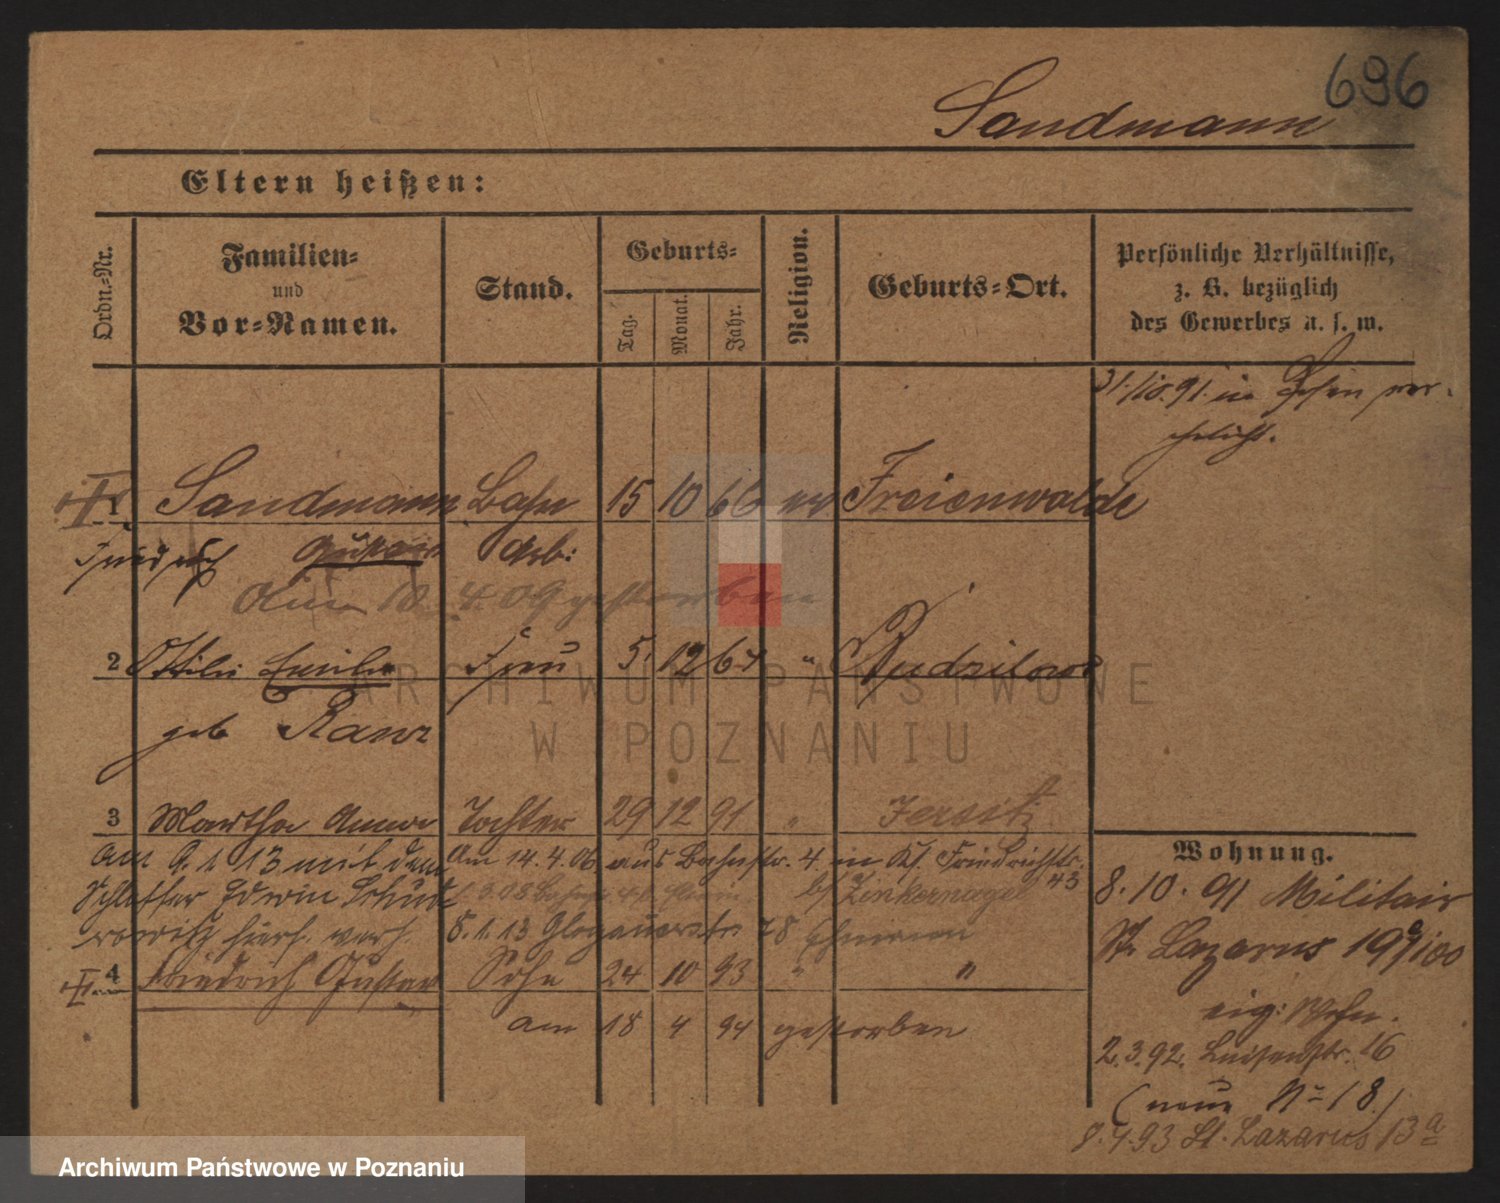 696
Sandmann
Eltern heißen:
Ordn.-Nr.
Familien-
und
Vor-Namen.
Stand.
Geburts-
Tag.
Monat.
Jahr.
Religion.
Geburts-Ort.
Persönliche Verhältnisse,
z. B. bezüglich
des Gewerbes u. s. w.
31./10.91. in Posen ver-
ehelicht.
1 Sandmann Bahn 15 10 66 ev Freienwalde
Friedrich Gustav Arb:
Am 10. 4. 09 gestorben
2 Ottilie Emilie Frau 5 12 64 " Budzilowo
geb
3 Martha Anna Tochter 29 12 91 " Jersitz
am 9. 1. 13 mit dem Am 14. 4. 06 aus Bahnstr. 4 in Kf. Friedrichstr. 43
Schlosser Edwin b/ Zinkernagel
hier verh. 8. 1. 13 Glogauerstr 78
4 Friedrich Gustav Sohn 24 10 93 " "
am 18 4 94 gestorben
Wohnung.
8. 10. 91 Militair
St. Lazarus 19a/100
eig: Wohn.
2.3.92. Luisenstr. 16
(neue No 18)
8.4.93 St. Lazarus 13a
ARCHIWUM PAŃSTWOWE
W POZNANIU
Archiwum Państwowe w Poznaniu